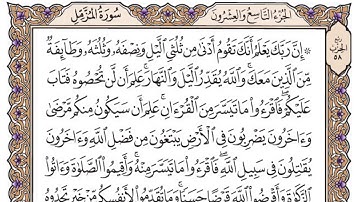 سُورَةُ المُزَّمِّلِ الجُزْءُ التَّاسِعُ وَالعِشْرُونَ
۞ إِنَّ رَبَّكَ يَعْلَمُ أَنَّكَ تَقُومُ أَدْنَىٰ مِن ثُلُثَيِ ٱلَّيْلِ وَنِصْفَهُۥ وَثُلُثَهُۥ وَطَآئِفَةٌ
مِّنَ ٱلَّذِينَ مَعَكَۚ وَٱللَّهُ يُقَدِّرُ ٱلَّيْلَ وَٱلنَّهَارَۚ عَلِمَ أَن لَّن تُحْصُوهُ فَتَابَ
عَلَيْكُمْۖ فَٱقْرَءُوا۟ مَا تَيَسَّرَ مِنَ ٱلْقُرْءَانِۚ عَلِمَ أَن سَيَكُونُ مِنكُم مَّرْضَىٰ
وَءَاخَرُونَ يَضْرِبُونَ فِى ٱلْأَرْضِ يَبْتَغُونَ مِن فَضْلِ ٱللَّهِ وَءَاخَرُونَ
يُقَٰتِلُونَ فِى سَبِيلِ ٱللَّهِۖ فَٱقْرَءُوا۟ مَا تَيَسَّرَ مِنْهُۚ وَأَقِيمُوا۟ ٱلصَّلَوٰةَ وَءَاتُوا۟
ٱلزَّكَوٰةَ وَأَقْرِضُوا۟ ٱللَّهَ قَرْضًا حَسَنًاۚ وَمَا تُقَدِّمُوا۟ لِأَنفُسِكُم مِّنْ خَيْرٍ تَجِدُوهُ
ربع
الحزب
٥٨